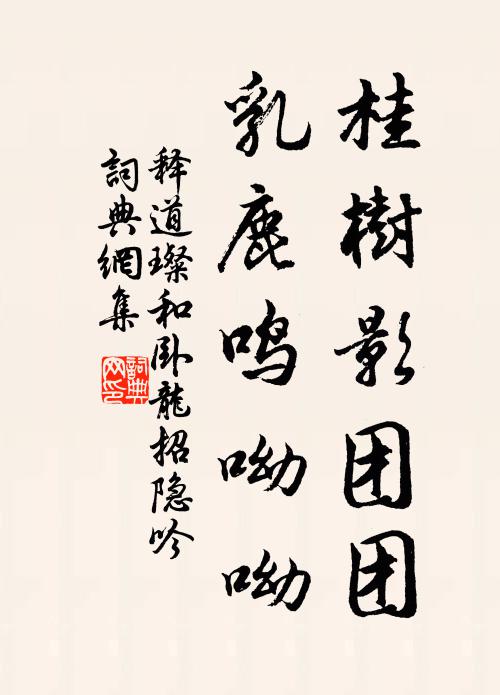 桂樹影团团
乳鹿鸣呦呦
释道璨和卧龍招隐吟
詞典網集
詞典网印